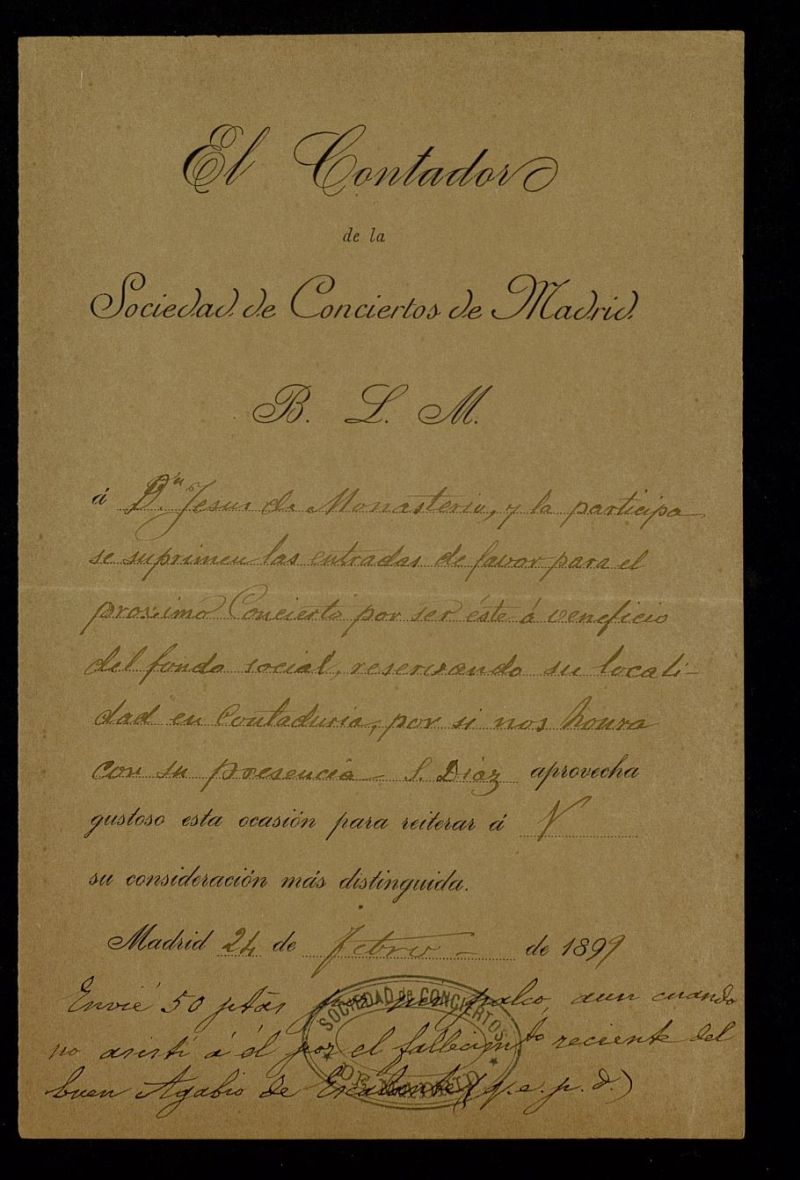 El Contador
de la
Sociedad de Conciertos de Madrid.
B. L. M.
á D.n Jesus de Monasterio, y la participa
se suprimen las entradas de favor para el
proximo Concierto por ser éste á veneficio
del fondo social, reservando su locali-
dad en Contaduria, por si nos honra
con su presencia - S. Diaz aprovecha
gustoso esta ocasión para reiterar á V
su consideración más distinguida.
Madrid 24 de Febro - de 1899
Envié 50 ptas por mi palco, aun cuando
no asistí á él por el fallecimto reciente del
buen Agabio de Escalante (q.e.p.d.)
SOCIEDAD de CONCIERTOS
* DE MADRID *